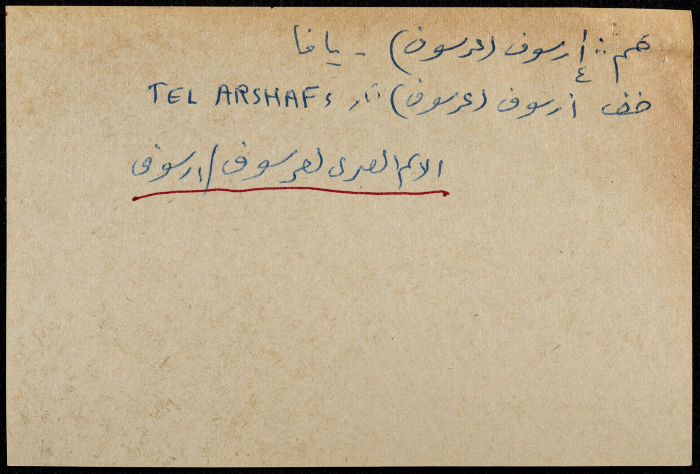 هم :: أرسوف (عرسوف) - يافا
خفف أرسوف (عرسوف) :: TEL ARSHAFS
الاسم العبري لعرسوف / ارسوف